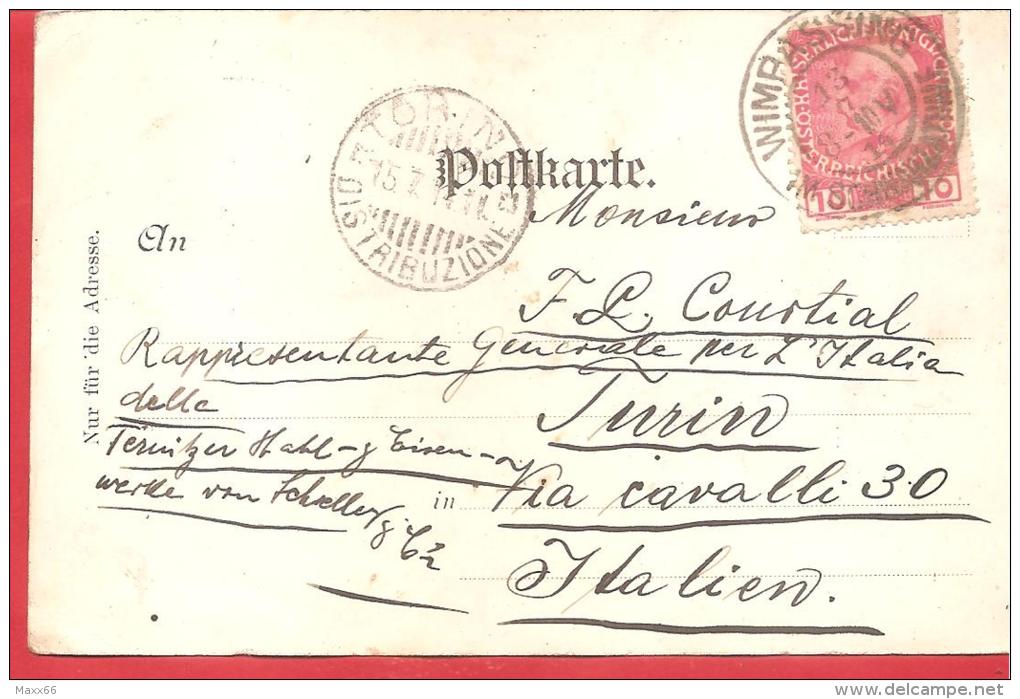 WIMPASSING
TORINO
DISTRIBUZIONE
10 10
Postkarte.
Monsieur
An
F. L. Courtial
Rappresentante Generale per L'Italia
della
Turin
Ternitzer Stahl- & Eisen-
werke von Schoeller & Co
in Via Cavalli 30
Italien.
Nur für die Adresse.
Maxx66
delcampe.net